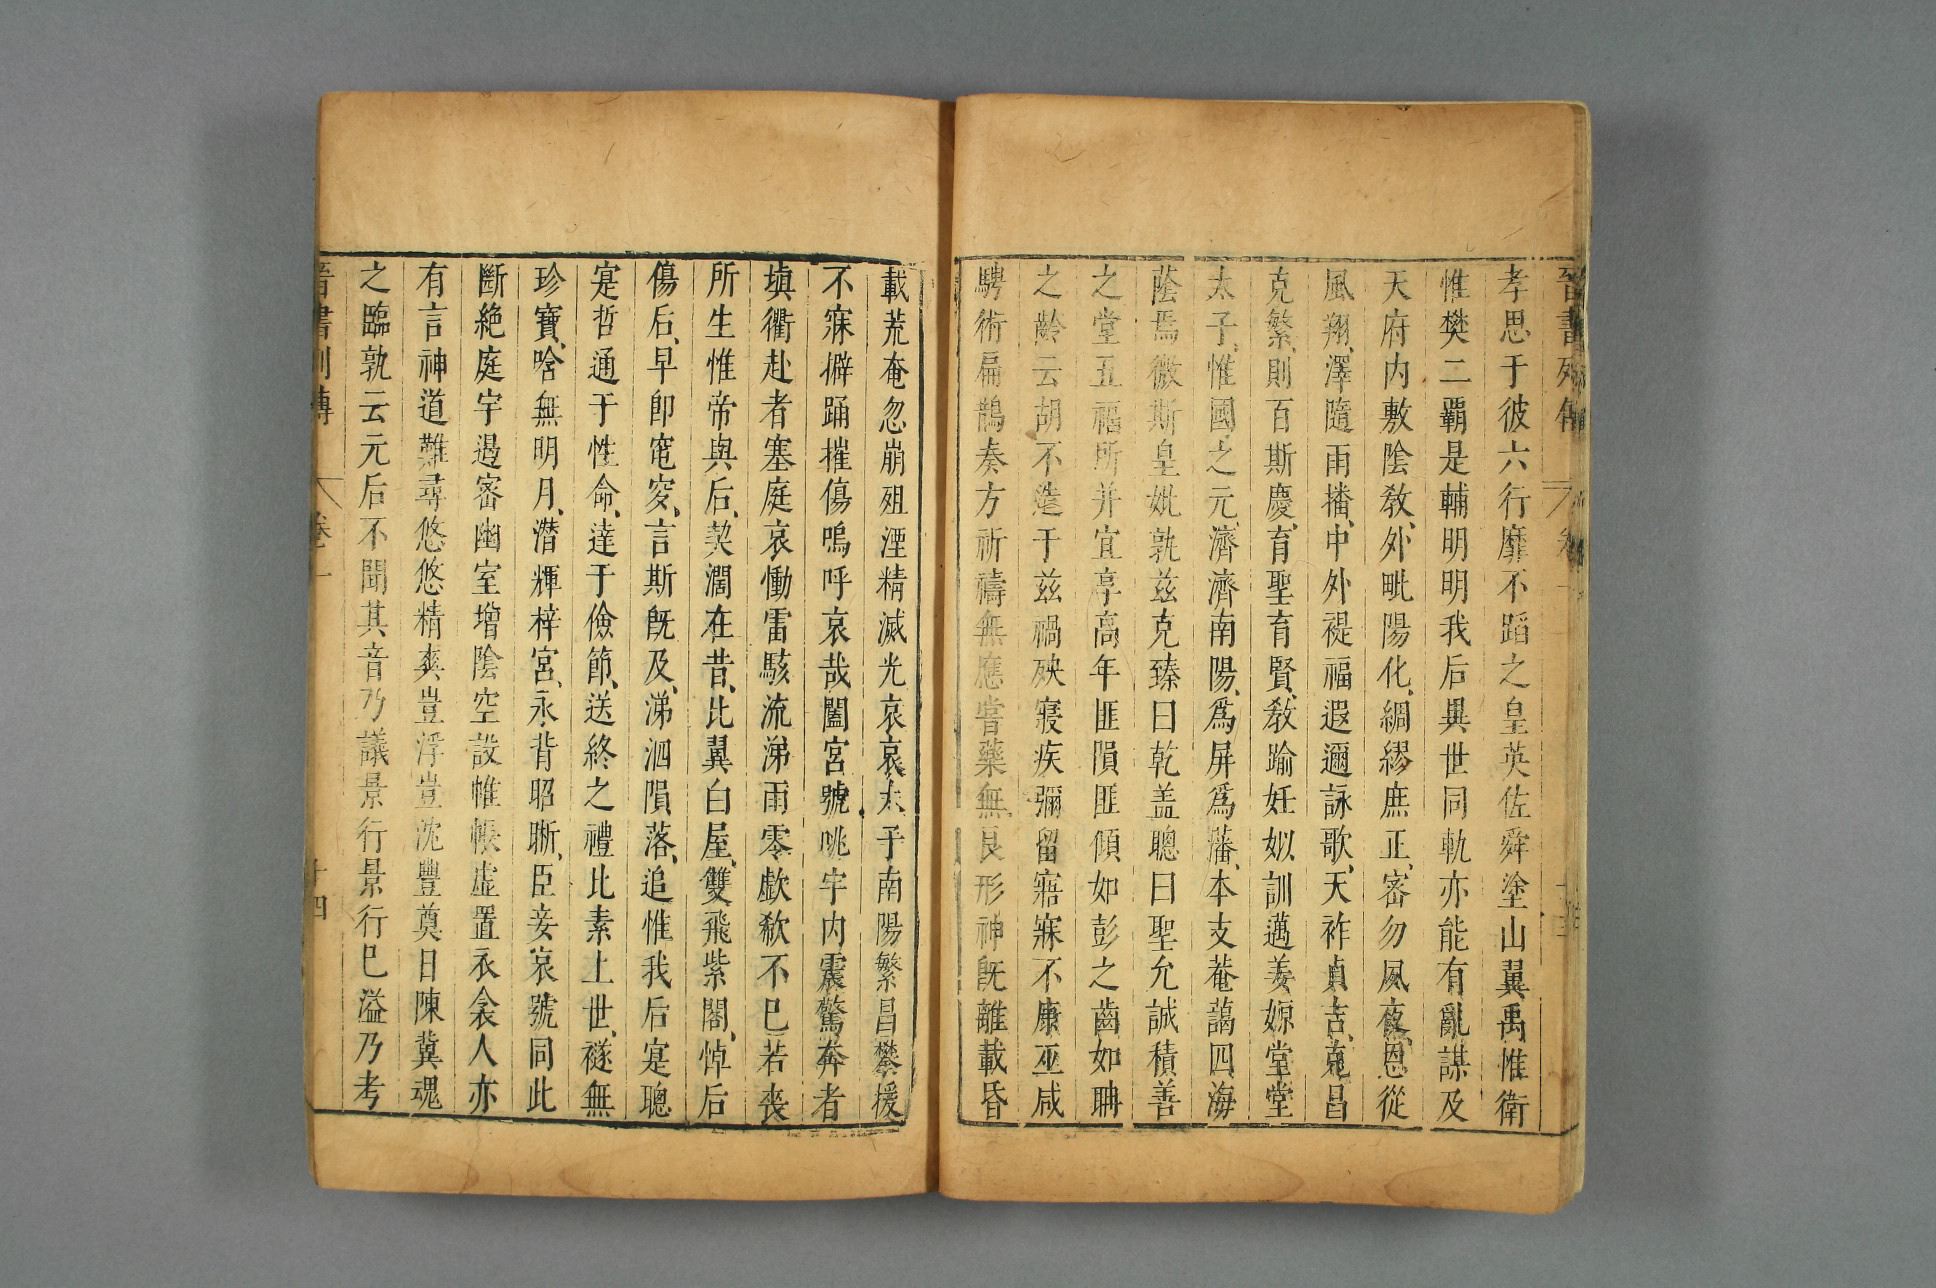 晉書列傳 卷一
孝思于彼六行靡不蹈之皇英佐舜塗山翼禹惟衛
惟樊二霸是輔明明我后異世同軌亦能有亂謀及
天府内敷陰敎、外毗陽化、綢繆庶正、密勿夙夜、恩從
風翔、澤隨雨播、中外禔福遐邇詠歌、天祚貞吉、克昌
克繁、則百斯慶、育聖育賢、敎踰妊姒訓邁姜嫄堂堂
太子、惟國之元、濟濟南陽、爲屏爲藩、本支菴藹四海
蔭焉微斯皇妣孰茲克臻曰乾盖聰曰聖允誠積善
之堂五福所并宜享高年匪隕匪傾如彭之齒如聃
之齡云胡不造于茲禍殃寢疾彌留寤寐不康巫咸
騁術扁鵲奏方祈禱無應嘗藥無良形神旣離載昏
載荒奄忽崩殂湮精滅光哀哀太子南陽繁昌攀援
不寐擗踊摧傷嗚呼哀哉闔宮號咷宇内震驚奔者
塡衢赴者塞庭哀慟雷駭流涕雨零歔欷不巳若喪
所生惟帝與后、契濶在昔、比翼白屋、雙飛紫閣、悼后
傷后、早卽窀穸、言斯旣及、涕泗隕落、追惟我后寔聰
寔哲通于性命、達于儉節、送終之禮比素上世、襚無
珍寶、唅無明月、潛輝梓宮、永背昭晰、臣妾哀號同此
斷絶庭宇遏密幽室增陰空設帷帳虛置衣衾人亦
有言神道難尋悠悠精爽豈浮豈沈豐奠日陳冀魂
之臨孰云元后不聞其音乃議景行景行巳溢乃考
晉書列傳 卷一 十四